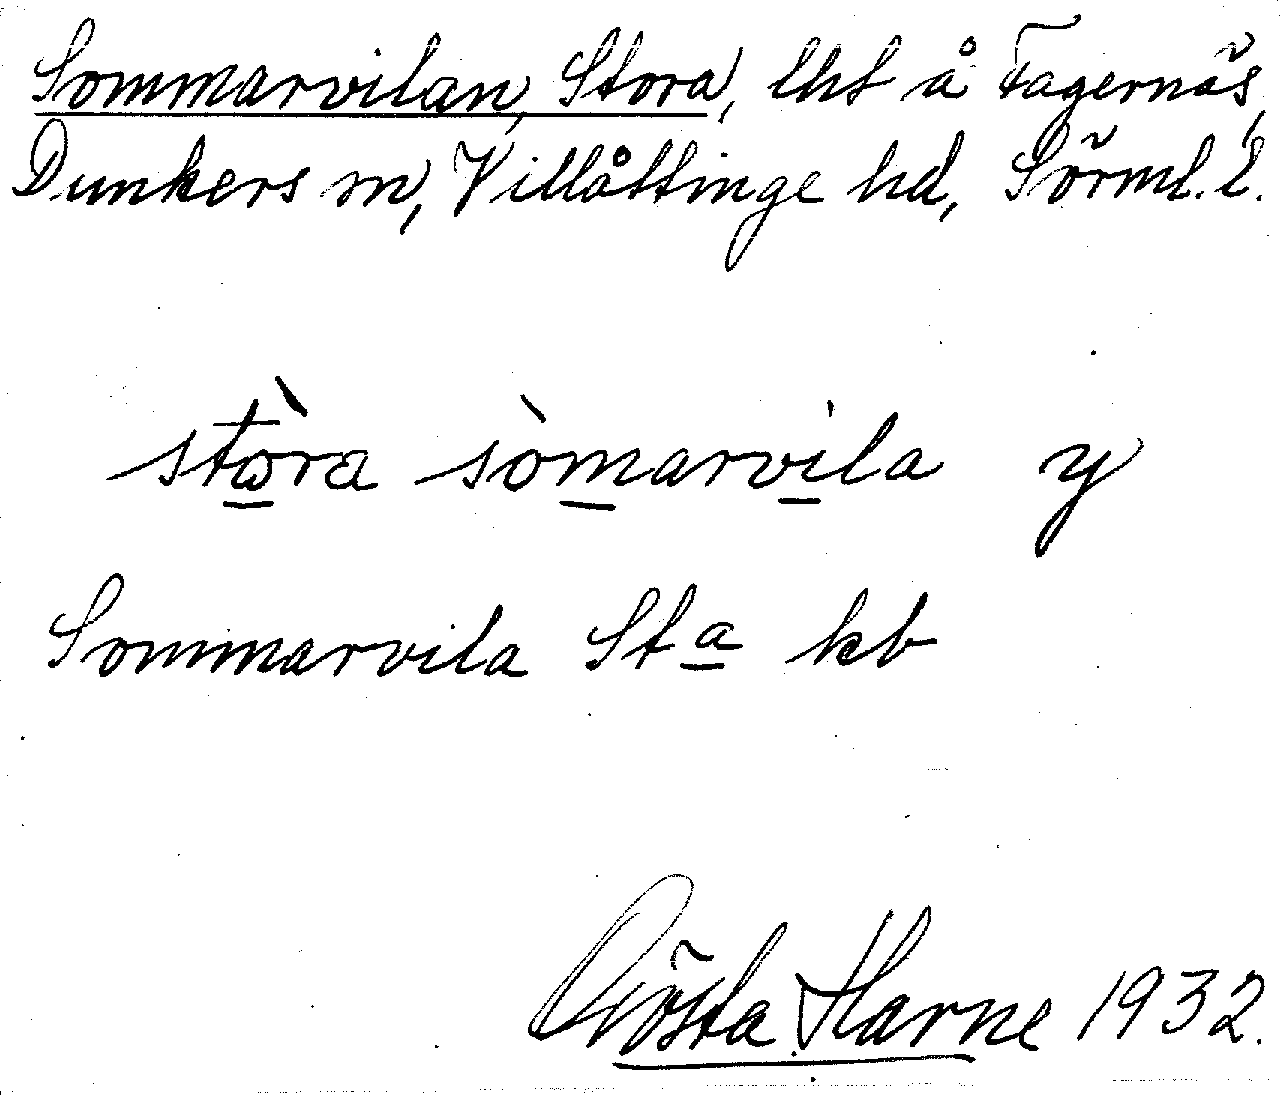 Sommarvilan, Stora, lht å Fagernäs,
Dunkers sn, Villåttinge hd, Sörml. l.
stὼra sòmarvila y
Sommarvila St<u>a</u> kb
Gösta Harne 1932.